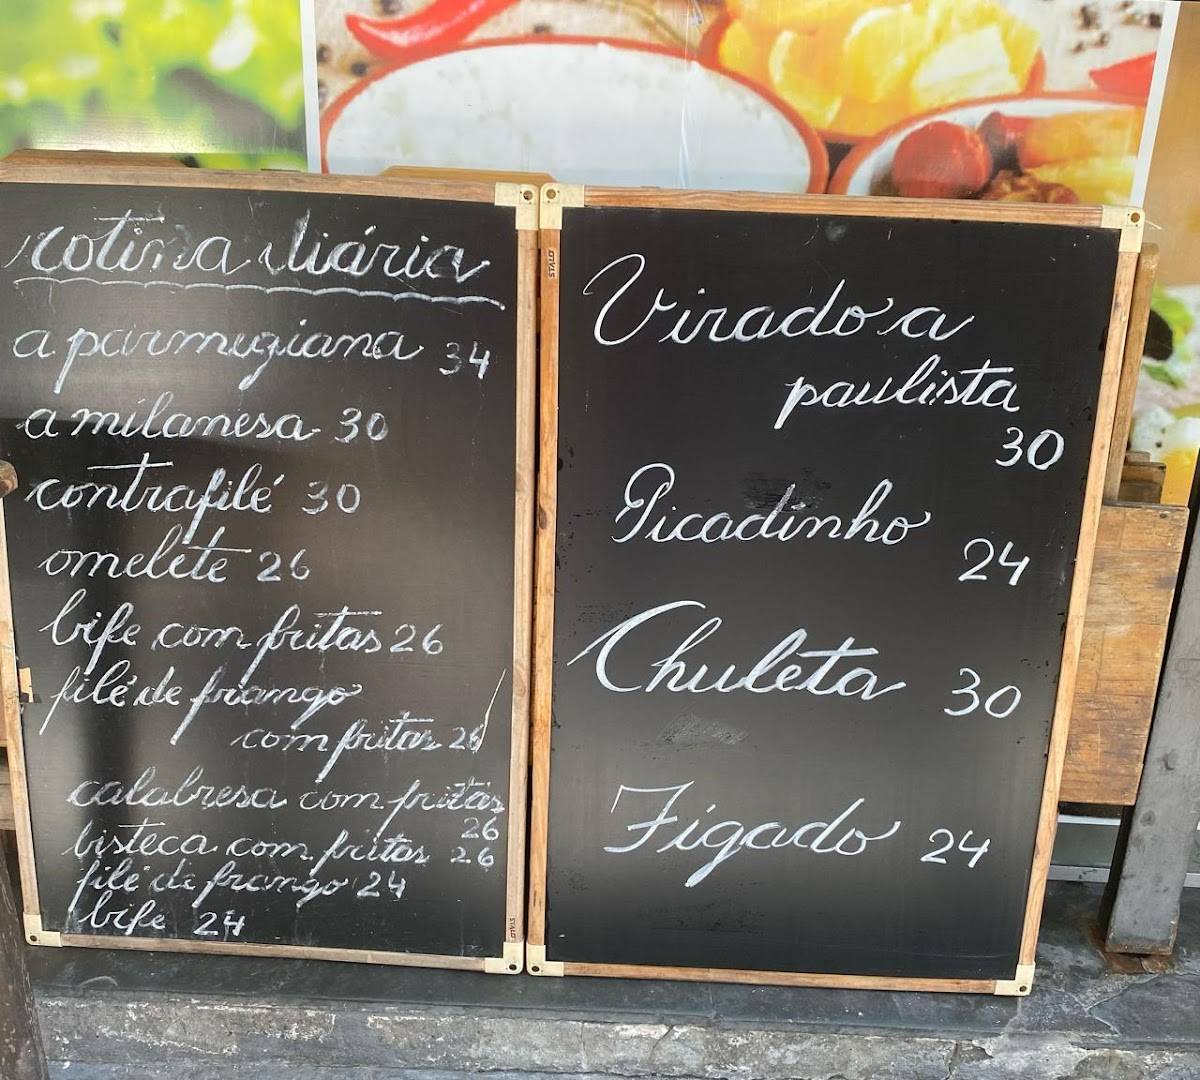 rotina diária
a parmegiana 34
a milanesa 30
contrafilé 30
omelete 26
bife com fritas 26
filé de frango
com fritas 26
calabresa com fritas
26
bisteca com fritas 26
filé de frango 24
bife 24
STALO
STALO
Virado a
paulista
30
Picadinho
24
Chuleta 30
Fígado 24